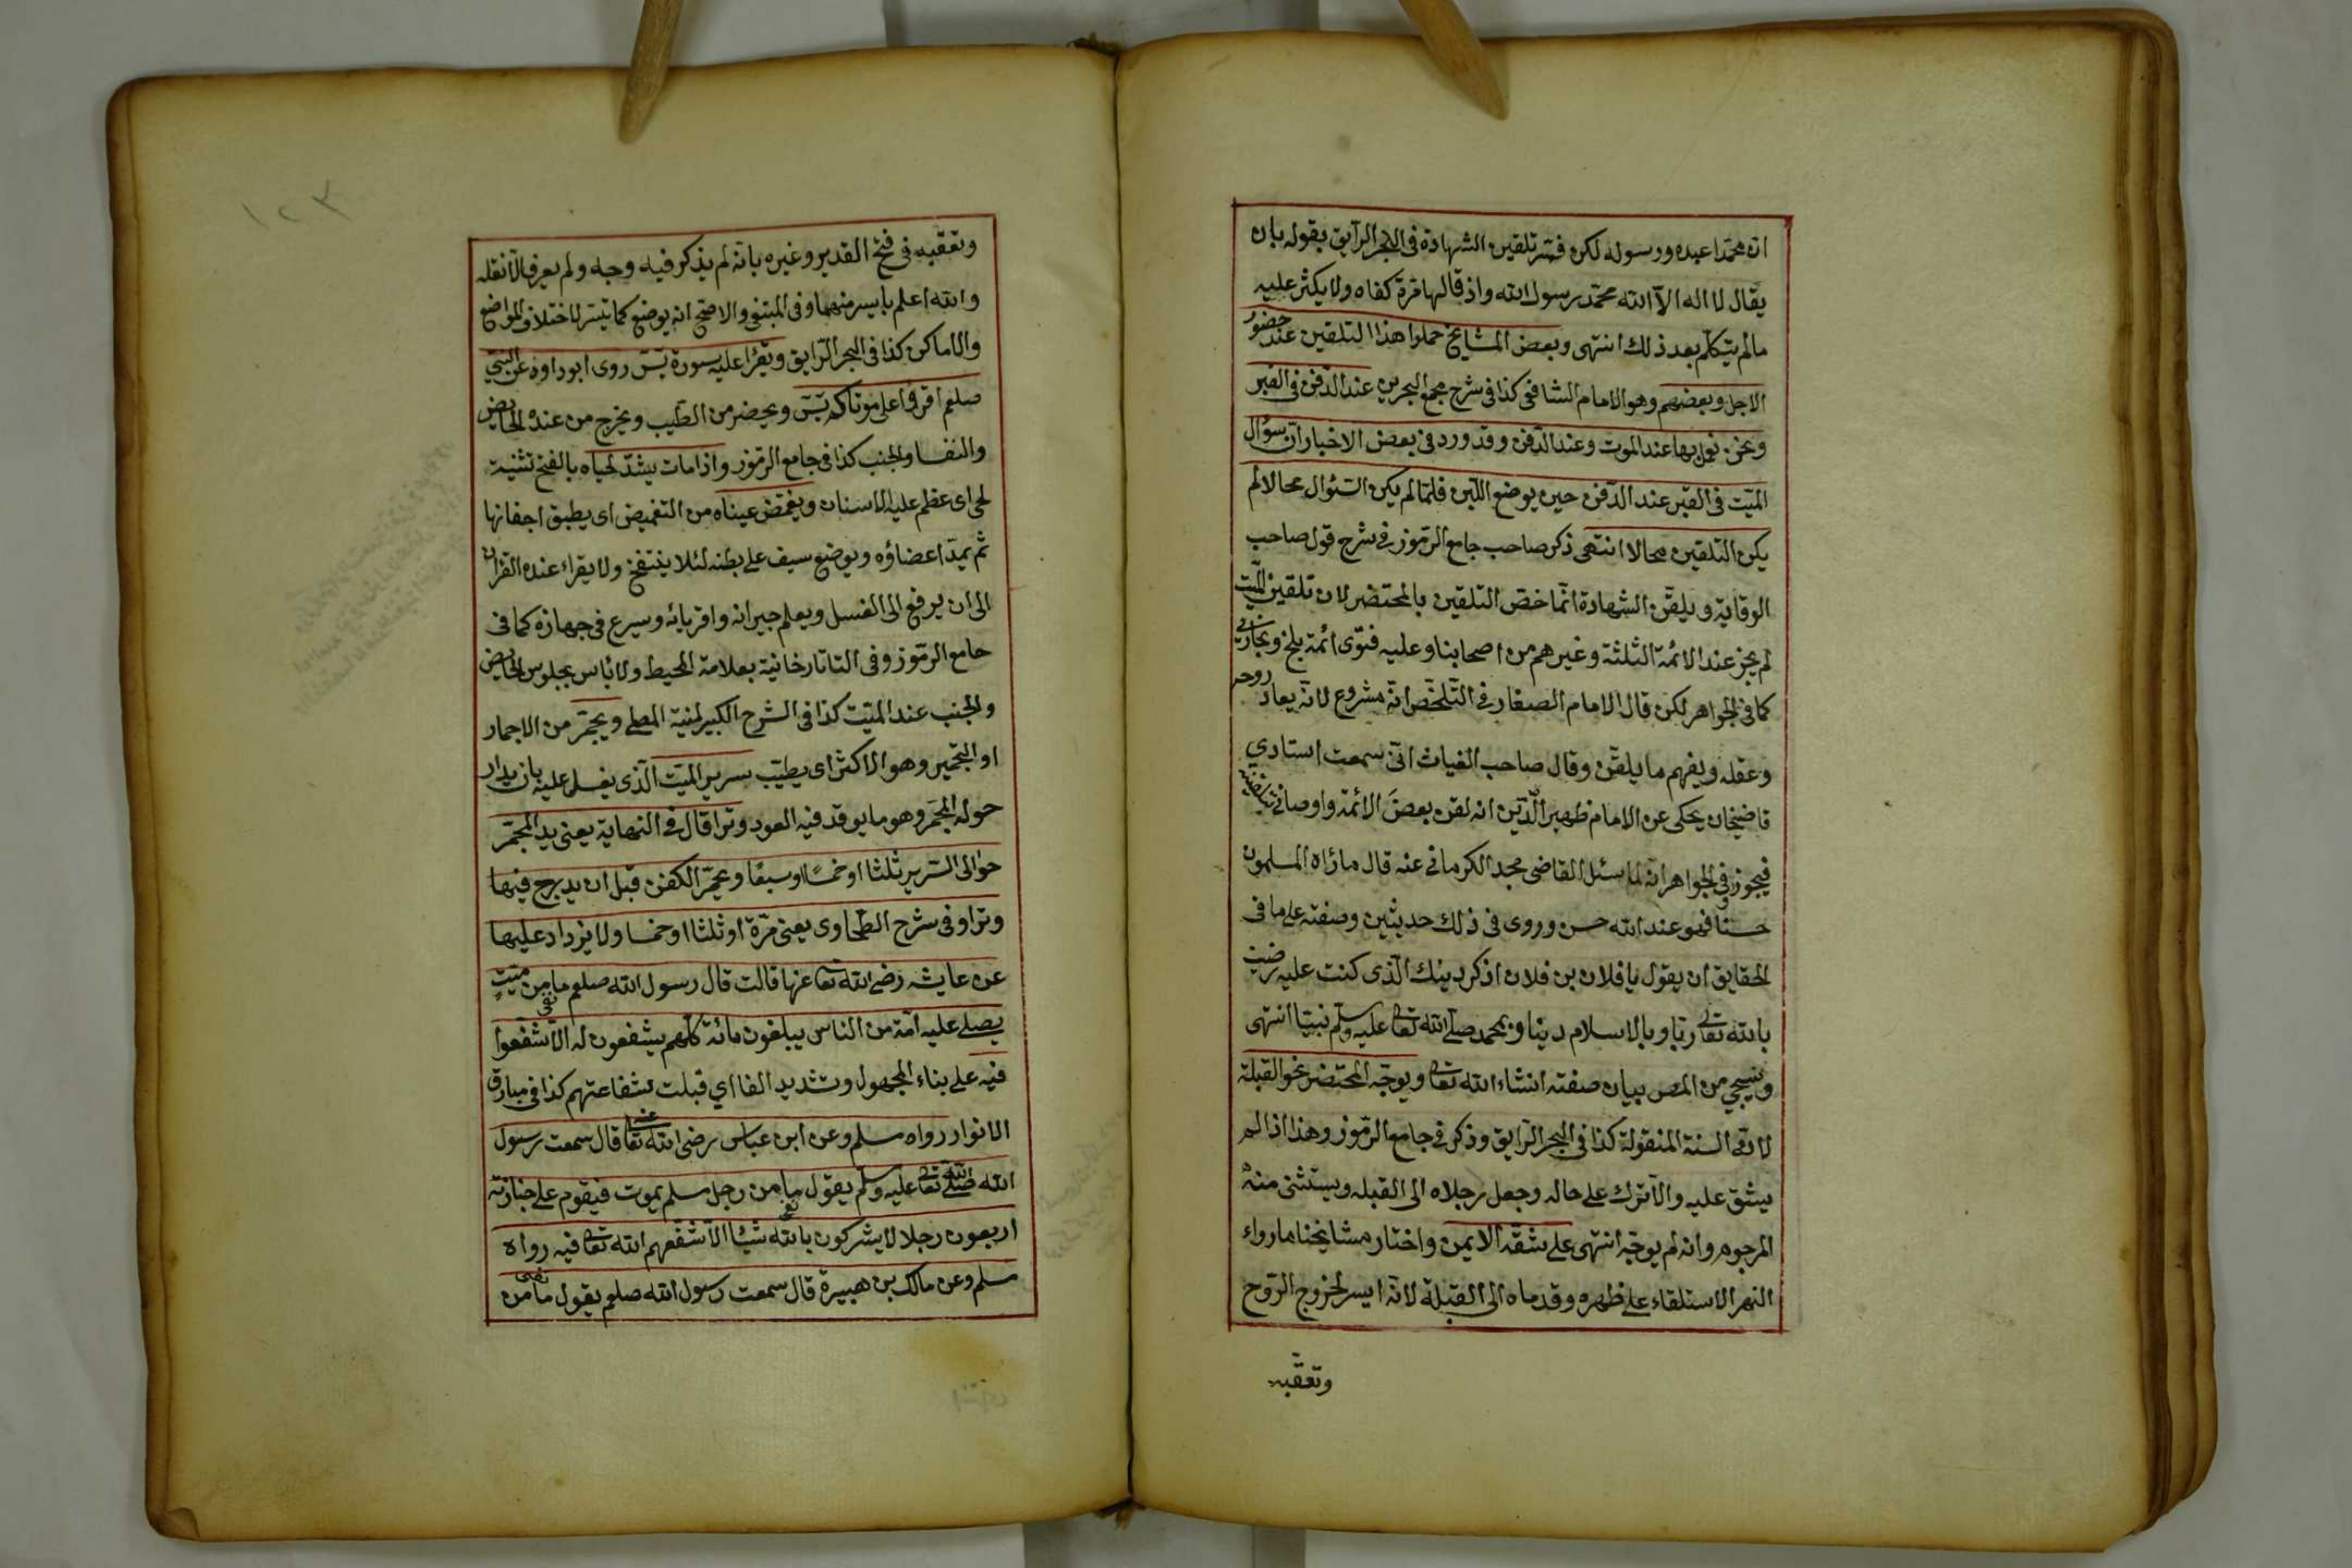 ان محمدا عبده ورسوله لكن فسر تلقين الشهادة فى البحر الرايق بقوله بان
يقال لا اله الا الله محمد رسول الله واذ قالها مرة كفاه ولا يكثر عليه
مالم يتكلم بعد ذلك انتهى وبعض المشايخ حملوا هذا التلقين عند حضور
الاجل وبعضهم وهو الامام الشافعى كذا فى شرح مجمع البحرين عند الدفن فى القبر
ونحن نعمل بها عند الموت وعند الدفن وقد ورد فى بعض الاخبار ان سؤال
الميت فى القبر عند الدفن حين يوضع اللبن فلما لم يكن السئوال محالا لم
يكن التلقين محالا انتهى ذكر صاحب جامع الرموز فى شرح قول صاحب
الوقاية ويلقن الشهادة انما خص التلقين بالمحتضر لان تلقين الميت
لم يجز عند الائمة الثلثة وغيرهم من اصحابنا وعليه فتوى ائمة بلخ وبخارى
كما فى الجواهر لكن قال الامام الصفار فى التلخص انه مشروع لانه يعاد روحه
وعقله ويفهم ما يلقن وقال صاحب الغياث انى سمعت استادي
قاضيخان يحكى عن الامام ظهير الدين انه لقن بعض الائمة واوصانى بتلقينه
فيجوز وفى الجواهر انه لما سئل القاضى مجد الكرمانى عنه قال ما رٔاه المسلمون
حسنا فهو عند الله حسن وروى فى ذلك حديثين وصفته على ما فى
الحقايق ان يقول يا فلان بن فلان اذكر دينك الذى كنت عليه رضيت
بالله تعالى ربا وبالاسلام دينا وبمحمد صلى الله تعالى عليه وسلم نبيا انتهى
وسيجي من المص بيان صفته انشاء الله تعالى ويوجه المحتضر نحو القبلة
لانه السنة المنقولة كذا فى البحر الرايق وذكر فى جامع الرموز وهذا اذا لم
يشق عليه والا ترك على حاله وجعل رجلاه الى القبله ويستثنى منه
المرجوم وانه لم يوجه انتهى على شقه الايمن واختار مشايخنا ماوراء
النهر الاستلقاء على ظهره وقدماه الى القبلة لانه ايسر لخروج الروح
وتعقبه
١٢٣
وتعقبه فى فتح القدير وغيره بانه لم يذكر فيه وجه ولم يعرف الا نقله
والله اعلم بايسر منهما وفى المبتغى والاصح انه يوضع كما تيسر لاختلاف المواضع
والاماكن كذا فى البحر الرايق ويقرأ عليه سورة يٓس روى ابو داود عن النبي
صلعم اقرؤا على موتاكم يٓس ويحضر من الطيب ويخرج من عنده الحايض
والنفسا والجنب كذا فى جامع الرموز واذا مات يشد لحياه بالفتح تثنية
لحى اى عظم عليه الاسنان ويغمض عيناه من التغميض اى يطبق اجفانها
ثم يمد اعضاؤه ويوضع سيف على بطنه لئلا ينتفخ ولا يقراء عنده القران
الى ان يرفع الى الغسل ويعلم جيرانه واقربائه ويسرع فى جهازه كما فى
جامع الرموز وفى التاتارخانية بعلامة المحيط ولا بٔاس بجلوس الحايض
والجنب عند الميت كذا فى الشرح الكبير لمنية المصلى ويجمر من الاجمار
او التجمير وهو الاكثر اى يطيب سرير الميت الذى يغسل عليه بان يدار
حوله المجمر وهو ما يوقد فيه العود وترا قال فى النهاية يعنى يدار المجمر
حوالى السرير ثلثا او خمسًا او سبعًا ويجمر الكفن قبل ان يدرج فيها
وترا وفى شرح الطحاوى يعنى مرة او ثلثا او خمسا ولا يزداد عليها
عن عايشه رضى الله تعا عنها قالت قال رسول الله صلعم ما من ميتٍ
يصلى عليه امة من الناس يبلغون مائة كلهم يشفعون له الا شفعوا
فيه على بناء المجهول وتشديد الفا اي قبلت شفاعتهم كذا فى مبارق
الانوار رواه مسلم وعن ابن عباس رضى الله تعا عنه قال سمعت رسول
الله صلى الله تعالى عليه وسلم يقول ما من رجل مسلم يموت فيقوم على جنازته
اربعون رجلا لا يشركون بالله شيئا الا شفعهم الله تعالى فيه رواه
مسلم وعن مالك بن هبيرة قال سمعت رسول الله صلعم يقول ما من